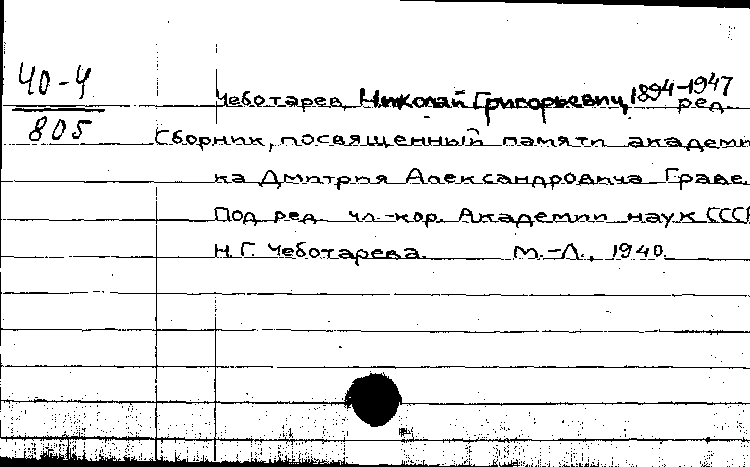 40-4
805
Чеботарев, Николай Григорьевич, 1894-1947 ред.
Сборник, посвященный памяти академи
ка Дмитрия Александровича Граве.
Под ред. чл.-кор. Академии наук СССР
Н.Г. Чеботарева. М.-Л., 1940.